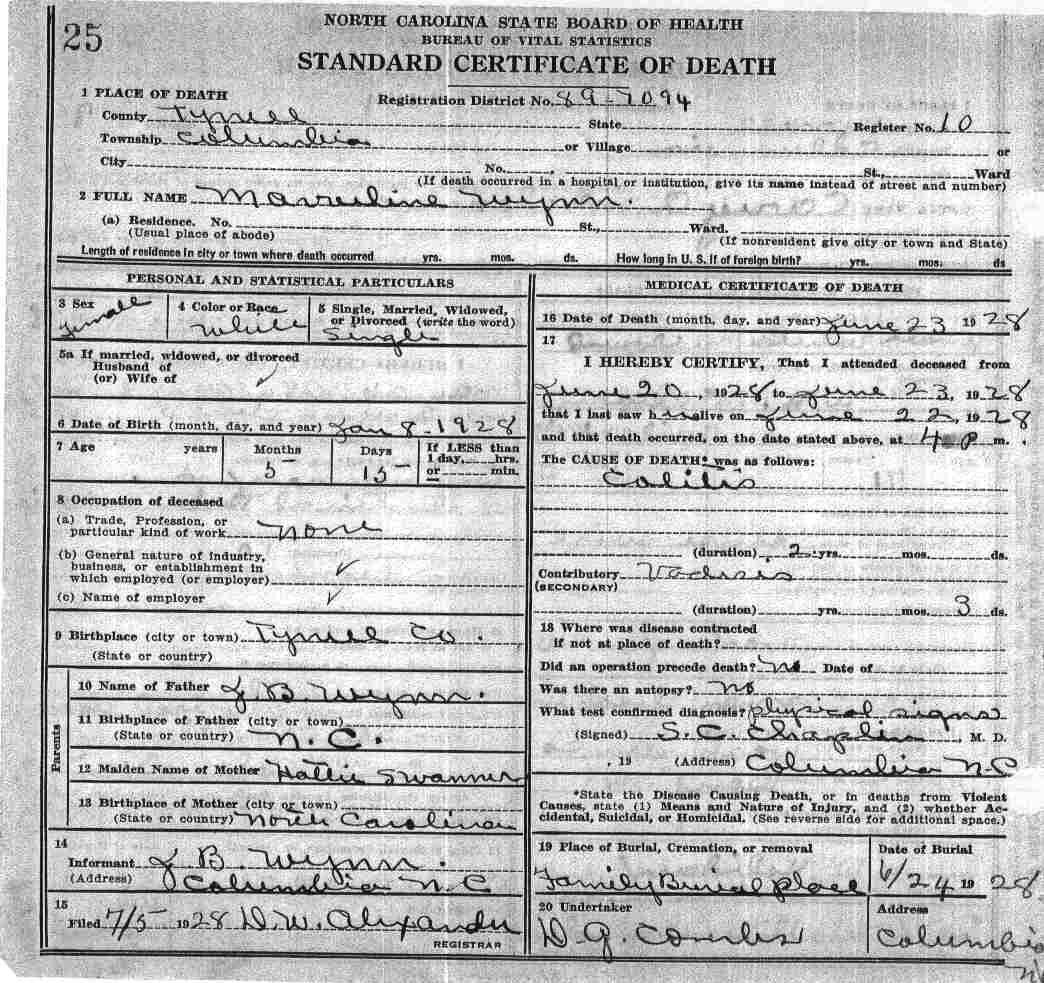 25
NORTH CAROLINA STATE BOARD OF HEALTH
BUREAU OF VITAL STATISTICS
STANDARD CERTIFICATE OF DEATH
1 PLACE OF DEATH
Registration District No. 89-7094
County Tyrrell State Register No. 10
Township Columbia or Village or
City No. , St., Ward
(If death occurred in a hospital or institution, give its name instead of street and number)
2 FULL NAME Wynn.
(a) Residence. No. St., Ward.
(Usual place of abode) (If nonresident give city or town and State)
Length of residence in city or town where death occurred yrs. mos. ds. How long in U. S. if of foreign birth? yrs. mos. ds
PERSONAL AND STATISTICAL PARTICULARS
3 Sex
female
4 Color or Race
White
5 Single, Married, Widowed,
or Divorced (write the word)
Single
5a If married, widowed, or divorced
Husband of
(or) Wife of ✓
6 Date of Birth (month, day, and year) Jan 8-1928
7 Age years Months Days If LESS than
1 day, hrs.
or min.
5 15
8 Occupation of deceased
(a) Trade, Profession, or
particular kind of work none
(b) General nature of industry,
business, or establishment in
which employed (or employer) ✓
(c) Name of employer ✓
9 Birthplace (city or town) Tyrrell Co.
(State or country)
Parents
10 Name of Father J B. Wynn.
11 Birthplace of Father (city or town)
(State or country) N.C.
12 Maiden Name of Mother Hattie Swanner
13 Birthplace of Mother (city or town)
(State or country) North Carolina
14
Informant J B. Wynn.
(Address) Columbia N.C
15
Filed 7/5 1928 D.W. Alexander
REGISTRAR
MEDICAL CERTIFICATE OF DEATH
16 Date of Death (month, day, and year) June 23 1928
17
I HEREBY CERTIFY, That I attended deceased from
June 20, 1928 to June 23, 1928
that I last saw h alive on June 22, 1928
and that death occurred, on the date stated above, at 4 P m.
The CAUSE OF DEATH* was as follows:
Colitis
(duration) 2 yrs. mos. ds.
Contributory
(SECONDARY)
(duration) yrs. mos. 3 ds.
18 Where was disease contracted
if not at place of death?
Did an operation precede death? no Date of
Was there an autopsy? no
What test confirmed diagnosis? physical signs
(Signed) S.C. Chaplin, M. D.
, 19 (Address) Columbia N.C
*State the Disease Causing Death, or in deaths from Violent
Causes, state (1) Means and Nature of Injury, and (2) whether Ac-
cidental, Suicidal, or Homicidal. (See reverse side for additional space.)
19 Place of Burial, Cremation, or removal
Family Burial place
Date of Burial
6/24 1928
20 Undertaker
D. G. Combs
Address
Columbia
N